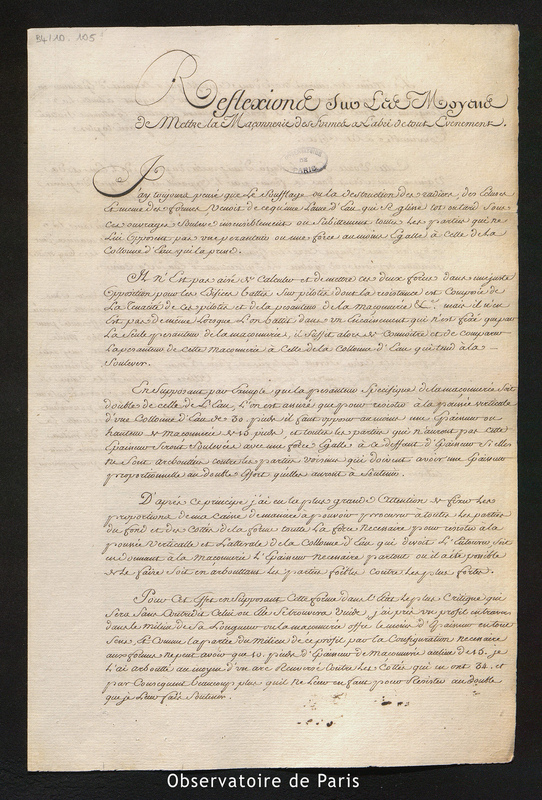 B4/10. 105
Reflexions Sur Les Moyens
de Mettre la Maçonnerie des formes a L'abri de tout Evenement.
PARIS
J'ay toujours pensé que Le Soufflage ou la destruction des radiers, des Ecluses
Et meme des formes venoit de ce qu'une Lame d'Eau qui se glisse tot ou tard Sous
Ces ouvrages Souleve insensiblement ou Subittement toutes Les parties qui ne
Lui opposent pas une pesanteur ou une force au moins Egalle a Celle de la
Collonne d'Eau qui la presse.
Il n'Est pas aisé de Calculer et de mettre ces deux forces dans une juste
Opposition pour les Edifices battis Sur pilotis dont la resistance est Composée de
La tenacité de ces pilotis et de la pesanteur de la maçonnerie &c. mais il n'en
Est pas de meme Lorsque L'on battit dans un Encaissement qui n'est fixé que par
La Seule pesanteur de la maçonnerie, il Suffit alors de Connoitre et de Comparer
La pesanteur de Cette maçonnerie a Celle de la Collonne d'Eau qui tend a la
Soulever.
En Supposant par Exemple que la pesanteur Specifique de la maçonnerie Soit
double de celle de L'Eau, L'on est assuré que pour resister a la poussée verticale
d'une Collonne d'Eau de 30 pieds il faut opposer au moins une Epaisseur ou
hauteur de maçonnerie de 15 pieds et toutes les parties qui n'auront pas cette
Epaisseur Seront Soulevées avec une force Egalle a ce deffaut d'Epaisseur Si elles
ne Sont arcboutées contre les parties voisines qui doivent avoir une Epaisseur
proportionnelle au double Effort qu'elles auront a Soutenir.
D'après ce principe j'ai eu la plus grande Attention de fixer Les
proportions de ma Caisse de maniere a pouvoir procurer a toutes les parties
du fond et des Cottés de la forme toutte La force necessaire pour resister a la
poussée verticalle et Laterale de la Collonne d'Eau qui devoit L'Entourer Soit
en donnant a la maçonnerie L'Epaisseur necessaire partout ou il a été possible
de Le faire Soit en arcboutant les parties foibles contre les plus fortes.
Pour Cet Effet en Supposant Cette forme dans L'Etat Le plus Critique qui
Sera Sans Contredit Celui ou Elle Se trouvera Vuide, j'ai pris un profil en travers
dans le milieu de Sa Longueur ou la maçonnerie offre le moins d'Epaisseur en tout
Sens, Et Comme la partie du Milieu de ce profil par la Configuration necessaire
aux formes ne peut avoir que 10. pieds d'Epaisseur de Maçonnerie au lieu de 15. je
L'ai arcboutté au moyen d'un arc Renversé Contre Les Cottés qui en ont 34. et
par Consequent beaucoup plus qu'il ne Leur en faut pour Resister au double
que je Leur fais Soutenir.
Observatoire de Paris